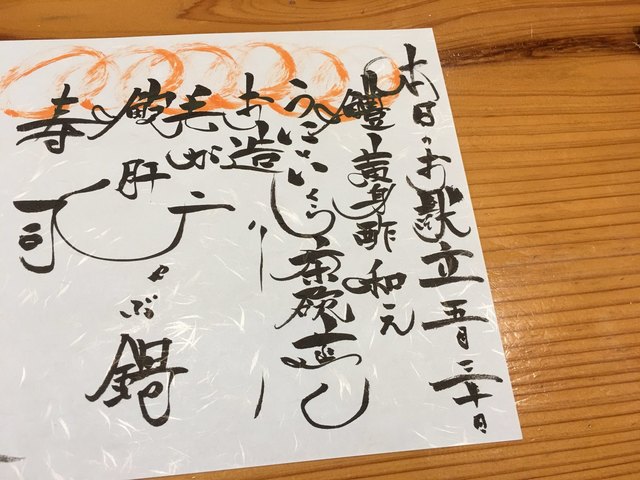 本日のお献立 五月三十日
鱧黄身酢和え
うにいくら茶碗蒸し
お造り
毛がに
鮑肝しゃぶ鍋
寿司